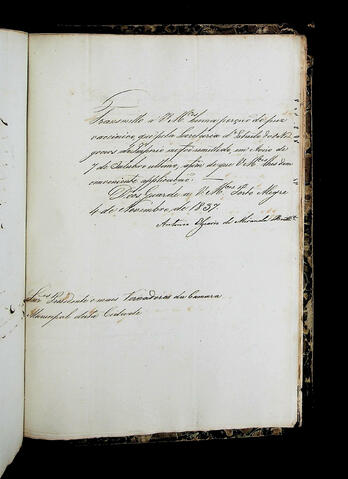 Transmitto a VMces huma porção de pus
vaccinico, que pela Secretaria d'Estado dos Ne
gocios do Imperio me foi remettido, em Aviso de
7 de Outubro ultimo, afim de que VMces lhes dem
conveniente applicação.
Deos Guarde a VMces Porto Alegre
4 de Novembro de 1837
Antonio
Snres Presidente e mais Vereadores da Camara
Municipal desta Cidade